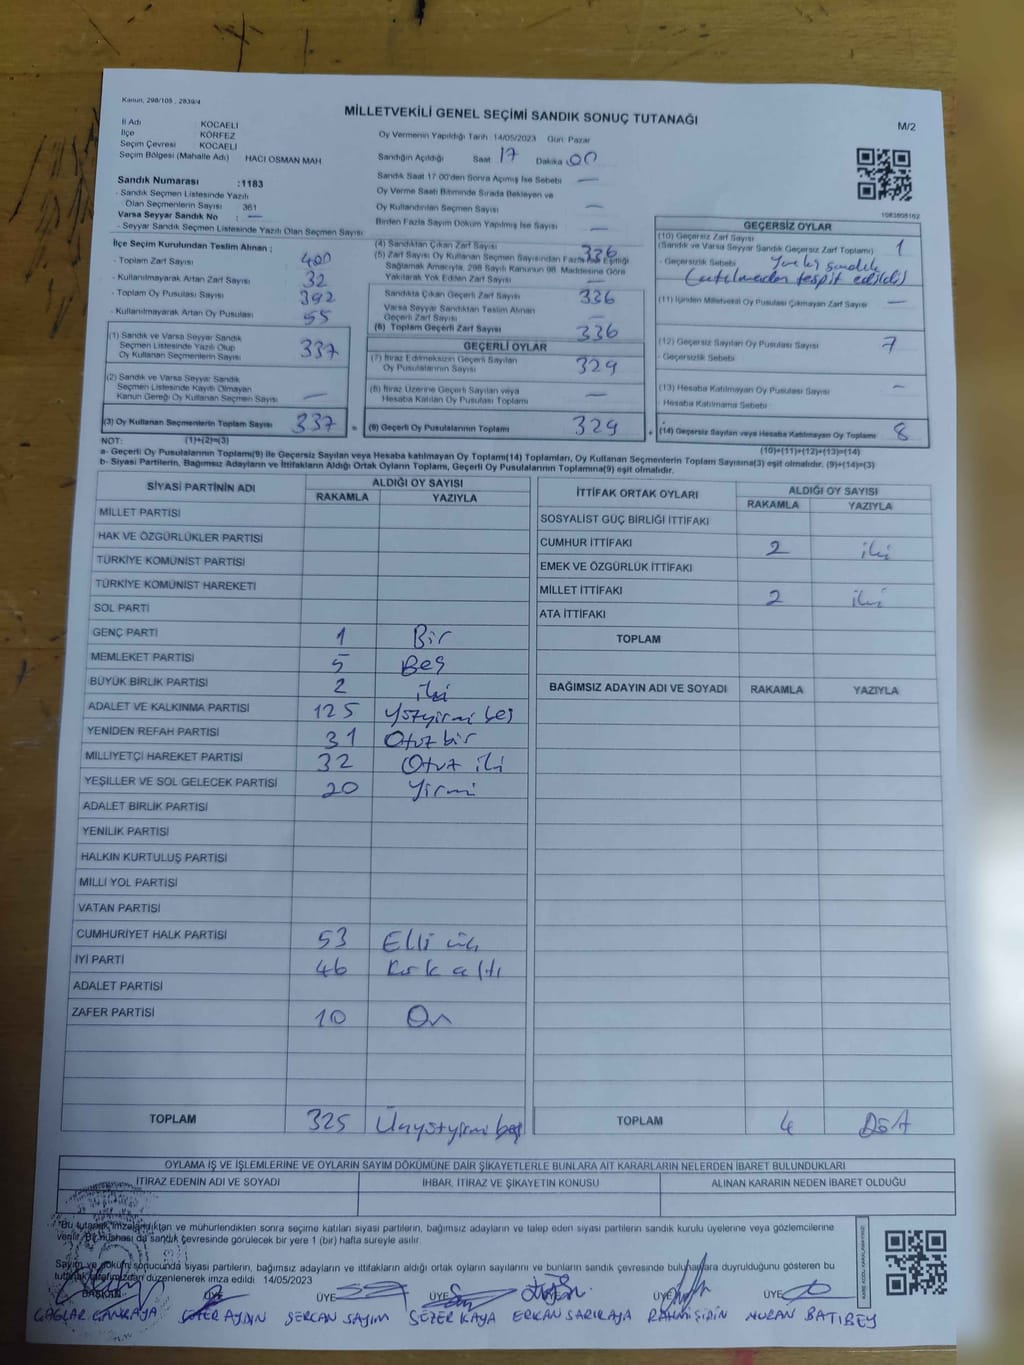 Kanun, 298/105 , 2839/4
MİLLETVEKİLİ GENEL SEÇİMİ SANDIK SONUÇ TUTANAĞI
M/2
İl Adı KOCAELİ
İlçe KÖRFEZ
Seçim Çevresi KOCAELİ
Seçim Bölgesi (Mahalle Adı) HACI OSMAN MAH
Sandık Numarası :1183
- Sandık Seçmen Listesinde Yazılı
Olan Seçmenlerin Sayısı 361
Varsa Seyyar Sandık No : —
- Seyyar Sandık Seçmen Listesinde Yazılı Olan Seçmen Sayısı
Oy Vermenin Yapıldığı Tarih 14/05/2023 Gün Pazar
Sandığın Açıldığı Saat 17 Dakika 00
Sandık Saat 17 00'den Sonra Açımış İse Sebebi —
Oy Verme Saati Bitiminde Sırada Bekleyen ve
Oy Kullandırılan Seçmen Sayısı —
Birden Fazla Sayım Döküm Yapılmış İse Sayısı —
İlçe Seçim Kurulundan Teslim Alınan ;
- Toplam Zarf Sayısı 400
- Kullanılmayarak Artan Zarf Sayısı 32
- Toplam Oy Pusulası Sayısı 392
- Kullanılmayarak Artan Oy Pusulası 55
(1) Sandık ve Varsa Seyyar Sandık
Seçmen Listesinde Yazılı Olup
Oy Kullanan Seçmenlerin Sayısı 337
(2) Sandık ve Varsa Seyyar Sandık
Seçmen Listesinde Kayıtlı Olmayan
Kanun Gereği Oy Kullanan Seçmen Sayısı —
(3) Oy Kullanan Seçmenlerin Toplam Sayısı 337 =
(4) Sandıktan Çıkan Zarf Sayısı 336
(5) Zarf Sayısı Oy Kullanan Seçmen Sayısından Fazla İse Eşitliği
Sağlamak Amacıyla, 298 Sayılı Kanunun 98. Maddesine Göre
Yakılarak Yok Edilen Zarf Sayısı —
Sandıkta Çıkan Geçerli Zarf Sayısı 336
Varsa Seyyar Sandıktan Teslim Alınan
Geçerli Zarf Sayısı —
(6) Toplam Geçerli Zarf Sayısı 336
GEÇERLİ OYLAR
(7) İtiraz Edilmeksizin Geçerli Sayılan
Oy Pusulalarının Sayısı 329
(8) İtiraz Üzerine Geçerli Sayılan veya
Hesaba Katılan Oy Pusulası Toplamı —
(9) Geçerli Oy Pusulalarının Toplamı 329 +
GEÇERSİZ OYLAR
(10) Geçersiz Zarf Sayısı
(Sandık ve Varsa Seyyar Sandık Geçersiz Zarf Toplamı) 1
- Geçersizlik Sebebi Yanlış sandık
(atılmadan tespit edildi)
(11) İçinden Milletvekili Oy Pusulası Çıkmayan Zarf Sayısı —
(12) Geçersiz Sayılan Oy Pusulası Sayısı 7
- Geçersizlik Sebebi
(13) Hesaba Katılmayan Oy Pusulası Sayısı —
Hesaba Katılmama Sebebi
(14) Geçersiz Sayılan veya Hesaba Katılmayan Oy Toplamı 8
NOT: (1)+(2)=(3) (10)+(11)+(12)+(13)=(14)
a- Geçerli Oy Pusulalarının Toplamı(9) ile Geçersiz Sayılan veya Hesaba katılmayan Oy Toplamı(14) Toplamları, Oy Kullanan Seçmenlerin Toplam Sayısına(3) eşit olmalıdır. (9)+(14)=(3)
b- Siyasi Partilerin, Bağımsız Adayların ve İttifakların Aldığı Ortak Oyların Toplamı, Geçerli Oy Pusulalarının Toplamına(9) eşit olmalıdır.
SİYASİ PARTİNİN ADI ALDIĞI OY SAYISI
RAKAMLA YAZIYLA
MİLLET PARTİSİ
HAK VE ÖZGÜRLÜKLER PARTİSİ
TÜRKİYE KOMÜNİST PARTİSİ
TÜRKİYE KOMÜNİST HAREKETİ
SOL PARTİ
GENÇ PARTİ 1 Bir
MEMLEKET PARTİSİ 5 Beş
BÜYÜK BİRLİK PARTİSİ 2 iki
ADALET VE KALKINMA PARTİSİ 125 Yüzyirmi beş
YENİDEN REFAH PARTİSİ 31 Otuz bir
MİLLİYETÇİ HAREKET PARTİSİ 32 Otuz iki
YEŞİLLER VE SOL GELECEK PARTİSİ 20 Yirmi
ADALET BİRLİK PARTİSİ
YENİLİK PARTİSİ
HALKIN KURTULUŞ PARTİSİ
MİLLİ YOL PARTİSİ
VATAN PARTİSİ
CUMHURİYET HALK PARTİSİ 53 Elli üç
İYİ PARTİ 46 Kırk altı
ADALET PARTİSİ
ZAFER PARTİSİ 10 On
TOPLAM 325 Üçyüzyirmi beş
İTTİFAK ORTAK OYLARI ALDIĞI OY SAYISI
RAKAMLA YAZIYLA
SOSYALİST GÜÇ BİRLİĞİ İTTİFAKI
CUMHUR İTTİFAKI 2 iki
EMEK VE ÖZGÜRLÜK İTTİFAKI
MİLLET İTTİFAKI 2 iki
ATA İTTİFAKI
TOPLAM
BAĞIMSIZ ADAYIN ADI VE SOYADI RAKAMLA YAZIYLA
TOPLAM 4 Dört
OYLAMA İŞ VE İŞLEMLERİNE VE OYLARIN SAYIM DÖKÜMÜNE DAİR ŞİKAYETLERLE BUNLARA AİT KARARLARIN NELERDEN İBARET BULUNDUKLARI
İTİRAZ EDENİN ADI VE SOYADI İHBAR, İTİRAZ VE ŞİKAYETİN KONUSU ALINAN KARARIN NEDEN İBARET OLDUĞU
"Bu tutanak imzalandıktan ve mühürlendikten sonra seçime katılan siyasi partilerin, bağımsız adayların ve talep eden siyasi partilerin sandık kurulu üyelerine veya gözlemcilerine
verilir. Bir nüshası da sandık çevresinde görülecek bir yere 1 (bir) hafta süreyle asılır.
Sayım ve döküm sonucunda siyasi partilerin, bağımsız adayların ve ittifakların aldığı ortak oyların sayılarını ve bunların sandık çevresinde bulunanlara duyrulduğunu gösteren bu
tutanak tarafımızdan düzenlenerek imza edildi 14/05/2023
BAŞKAN ÜYE ÜYE ÜYE ÜYE ÜYE
ÇAĞLAR ÇANKAYA AYDIN SERCAN SAYIM SEZER KAYA ERKAN SARIKAYA NURAN BATIBEY